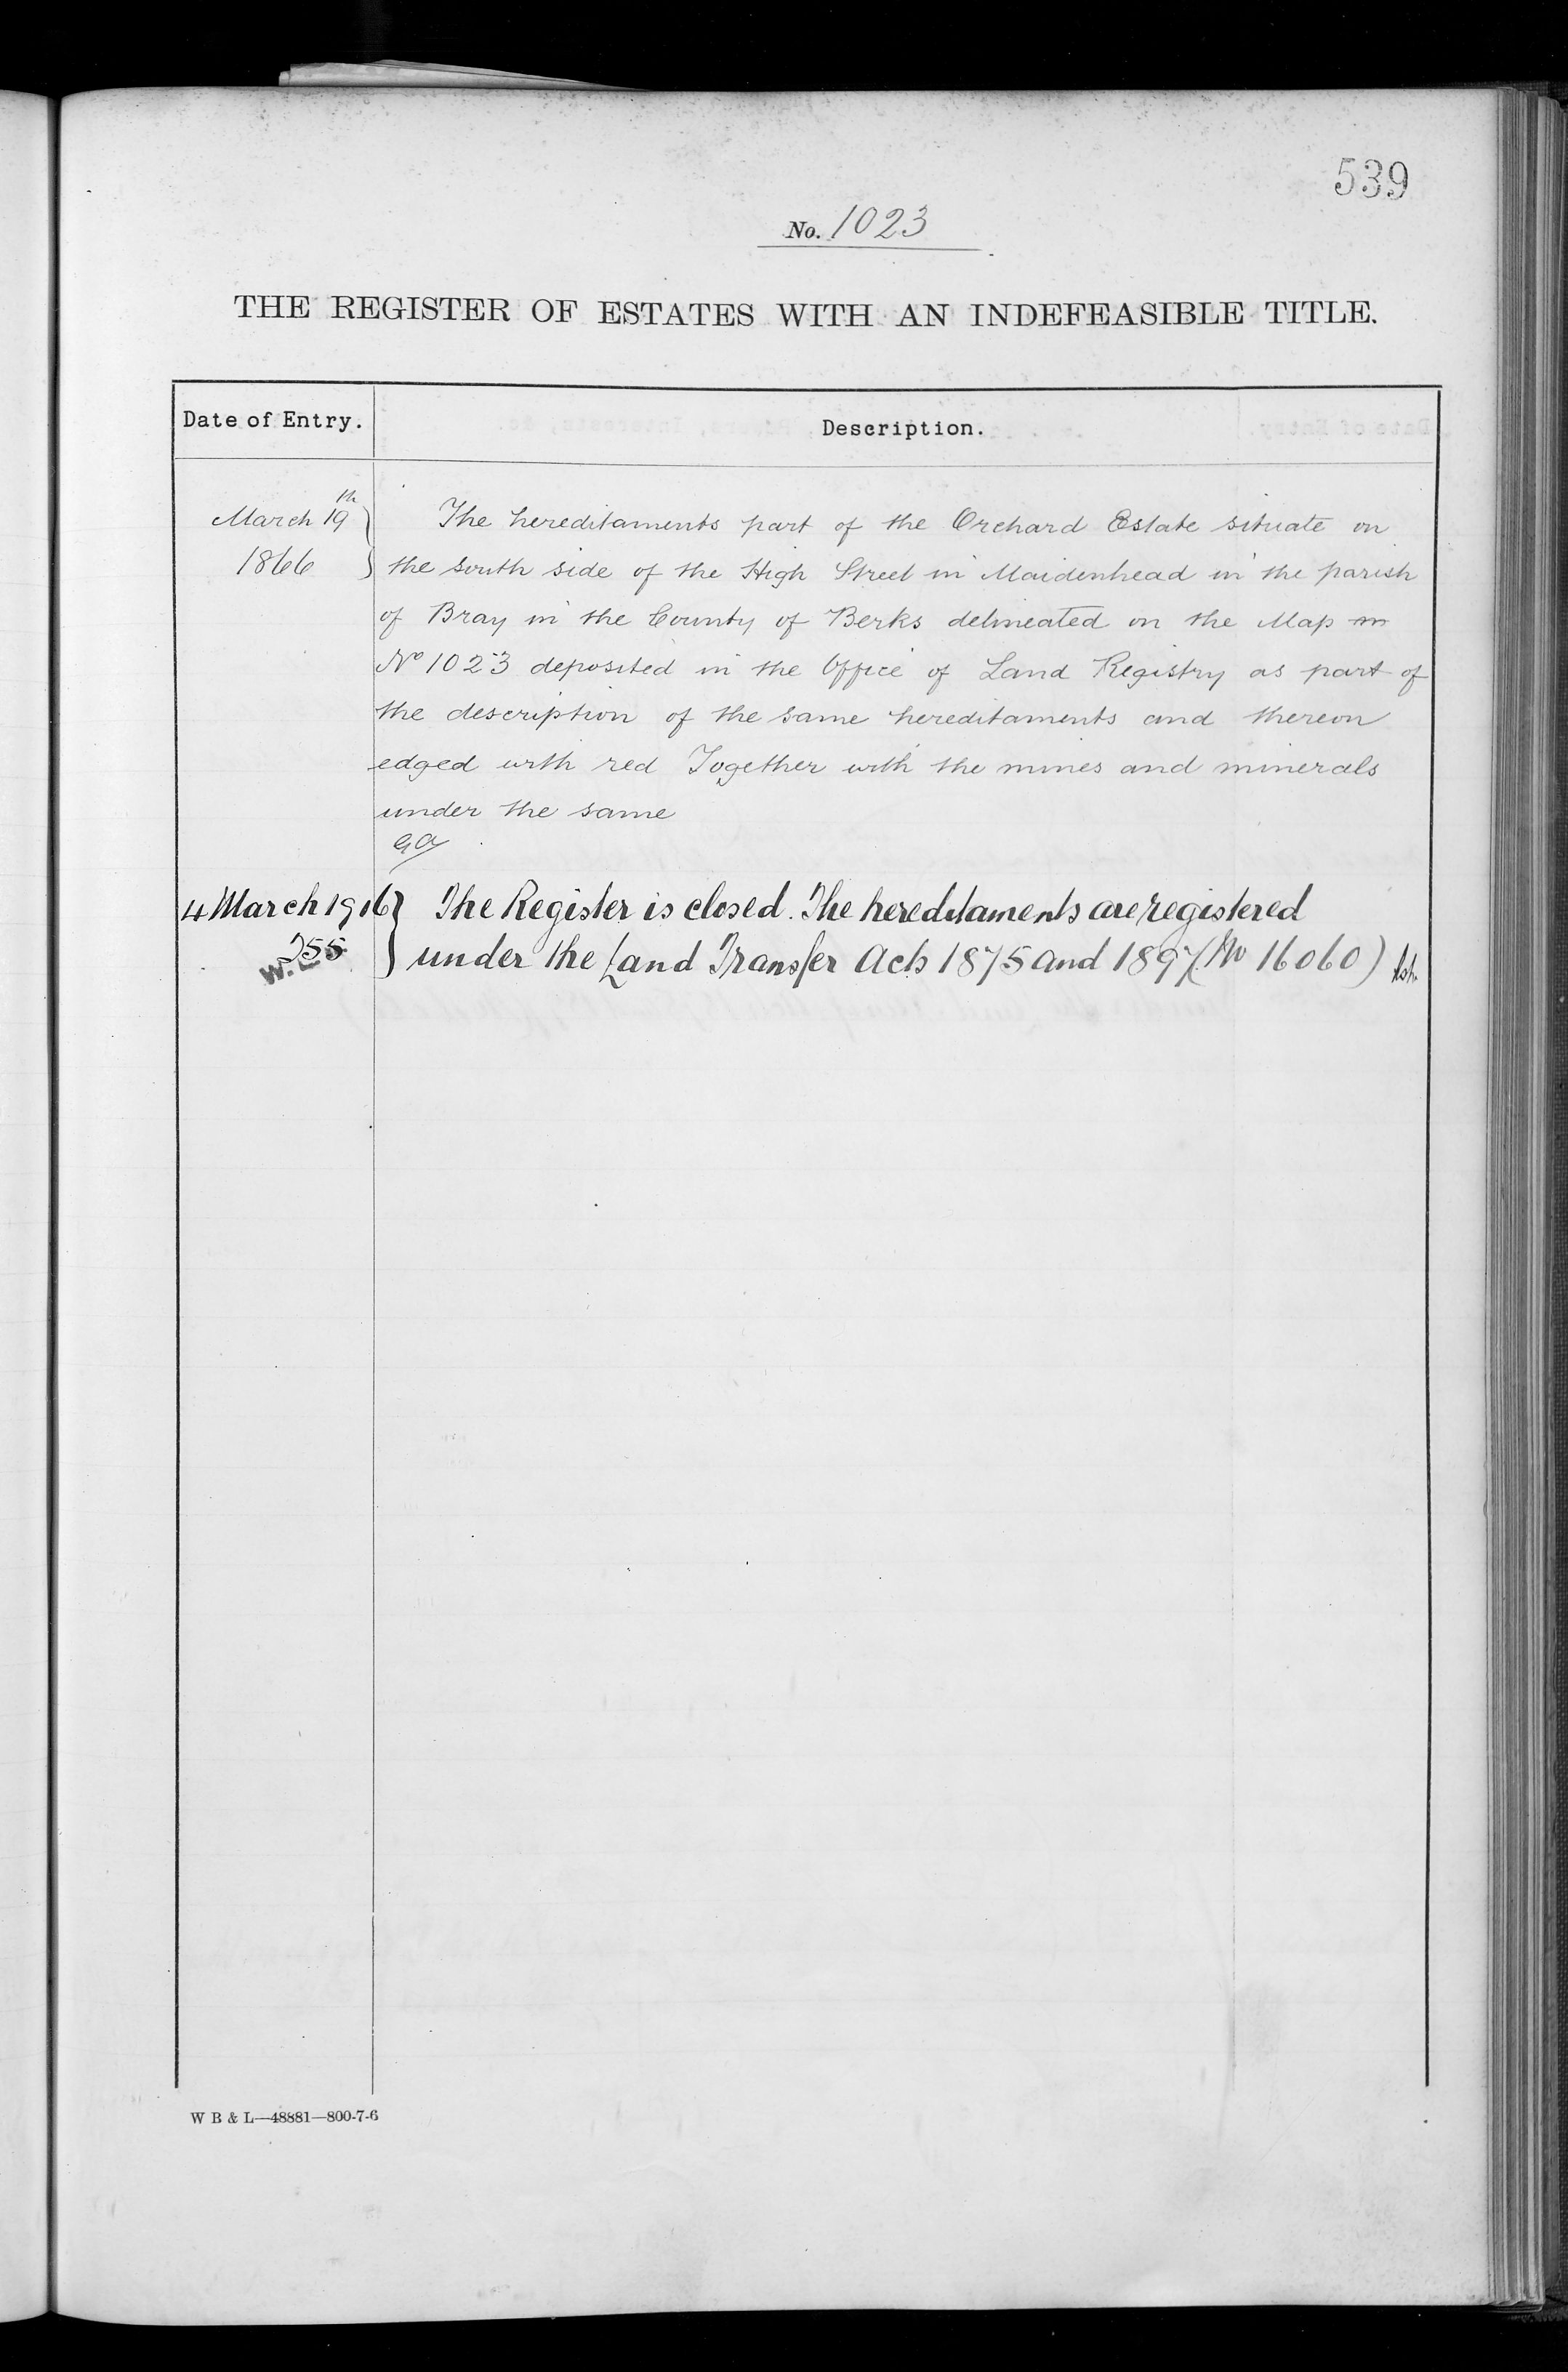 539
No. 1023
THE REGISTER OF ESTATES WITH AN INDEFEASIBLE TITLE.
Date of Entry.
Description.
March 19th
1866
The hereditaments part of the Orchard Estate situate on
the south side of the High Street in Maidenhead in the parish
of Bray in the County of Berks delineated on the Map in
No 1023 deposited in the Office of Land Registry as part of
the description of the same hereditaments and thereon
edged with red Together with the mines and minerals
under the same
4 March 1916
The Register is closed. The hereditaments are registered
under the Land Transfer Acts 1875 and 1897 (No 16060)
W B & L—48881—800-7-6